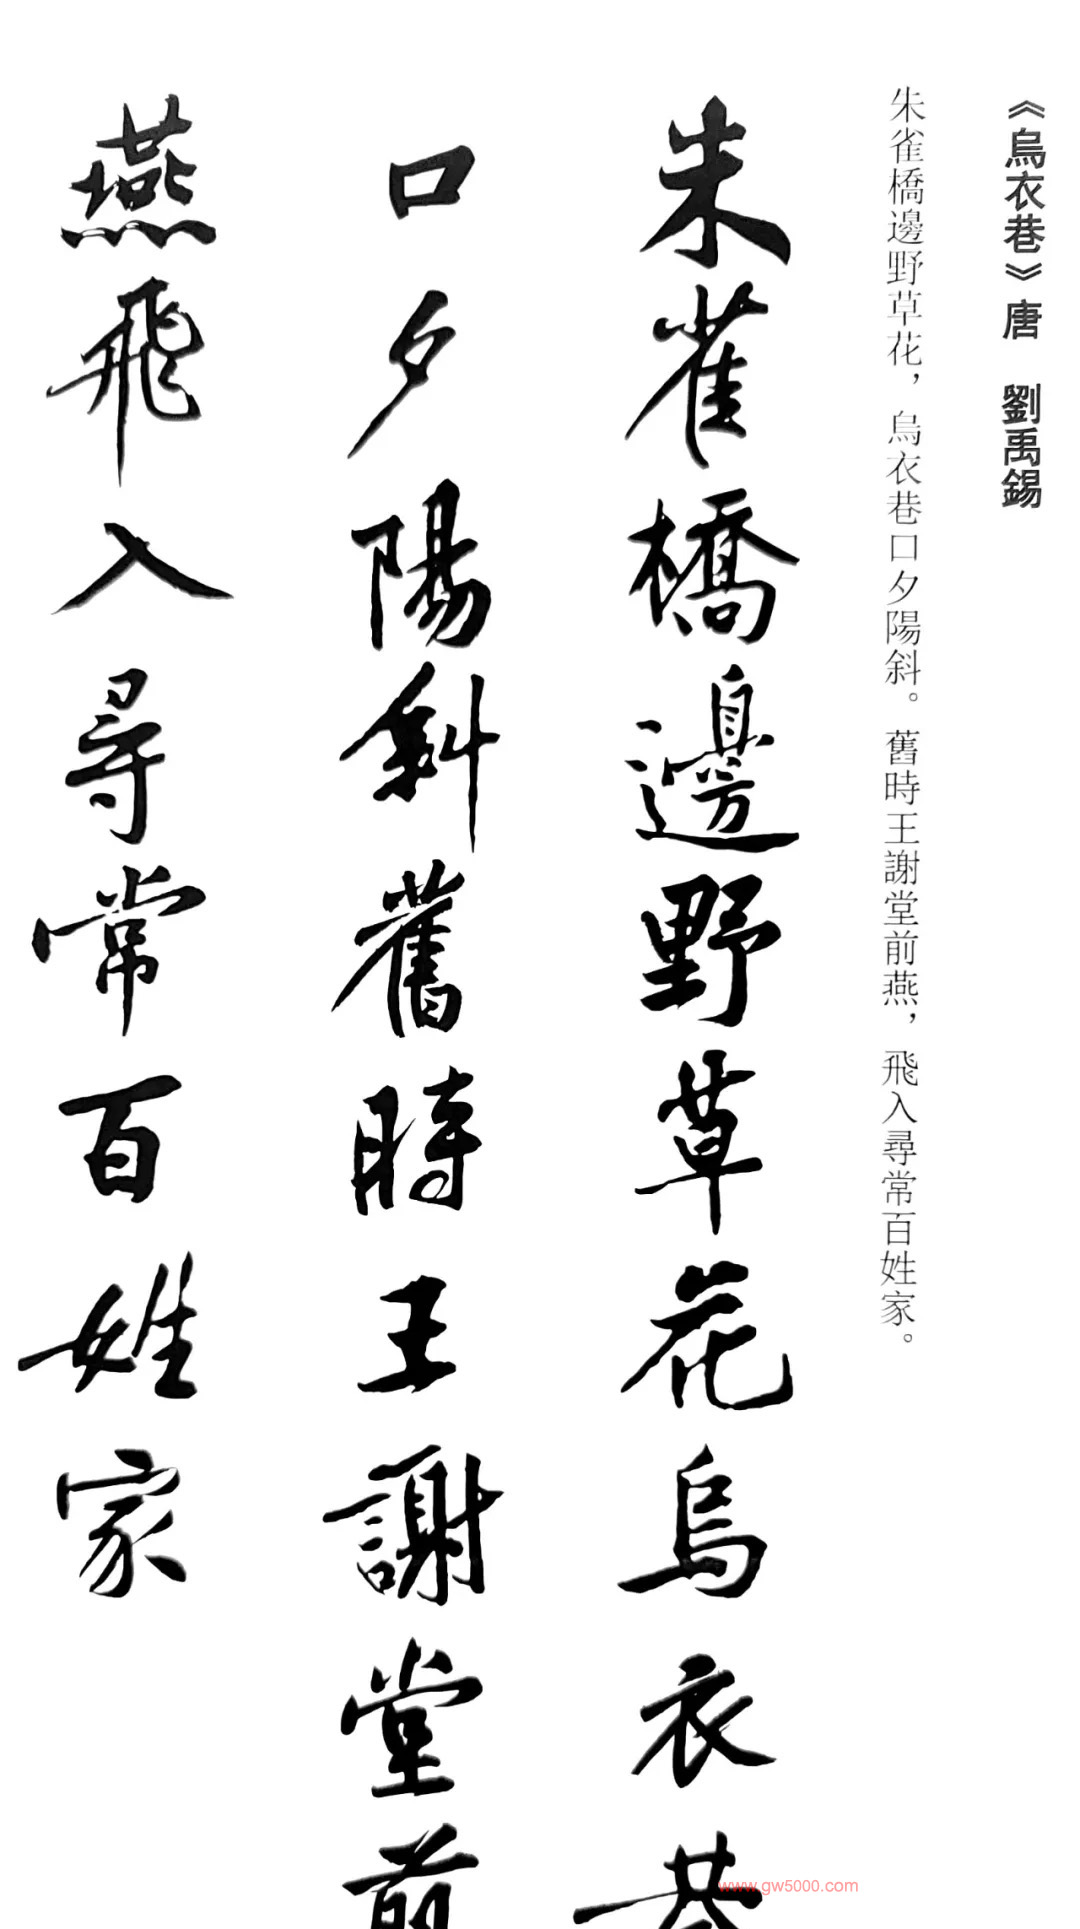 《烏衣巷》唐　劉禹錫
朱雀橋邊野草花，烏衣巷口夕陽斜。舊時王謝堂前燕，飛入尋常百姓家。
朱雀橋邊野草花烏衣巷
口夕陽斜舊時王謝堂前
燕飛入尋常百姓家
www.gw5000.com